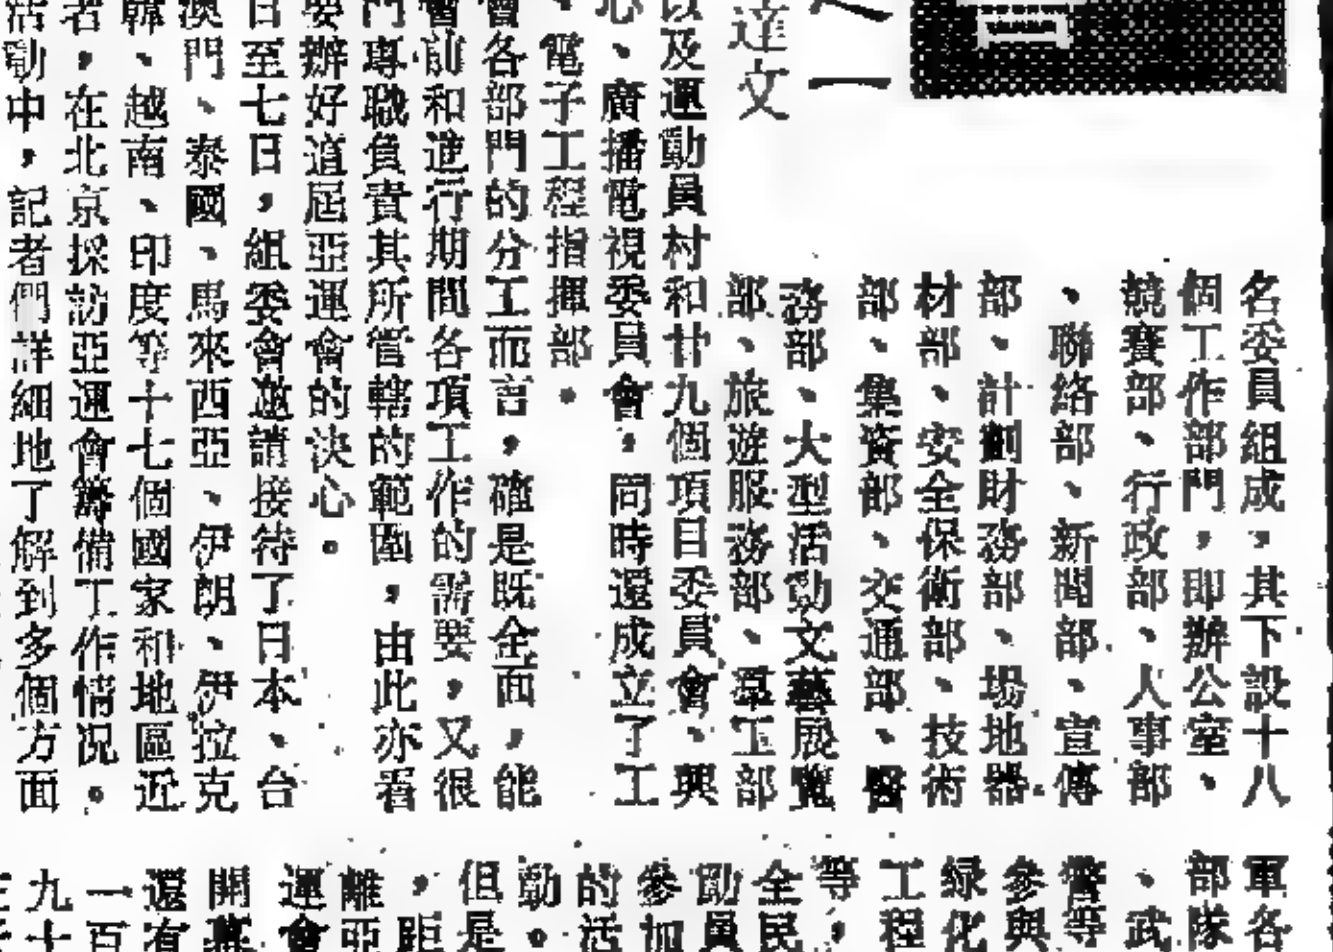 之一
達文
名委員組成，其下設十八
個工作部門，即辦公室、
競賽部、行政部、人事部
、聯絡部、新聞部、宣傳
部、計劃財務部、場地器
材部、安全保衛部、技術
部、集資部、交通部、醫
務部、大型活動文藝展覽
部、旅遊服務部、軍工部
以及運動員村和廿九個項目委員會、興
心、廣播電視委員會，同時還成立了工
、電子工程指揮部。
會各部門的分工而言，確是既全面，能
會前和進行期間各項工作的需要，又很
門專職負責其所管轄的範圍，由此亦看
要辦好這屆亞運會的決心。
日至七日，組委會邀請接待了日本、台
澳門、泰國、馬來西亞、伊朗、伊拉克
韓、越南、印度等十七個國家和地區近
者，在北京採訪亞運會籌備工作情況。
活動中，記者們詳細地了解到多個方面
軍各
部隊
、武
警等
參與
綠化
工程
等，
全民
動員
參加
的活
動。
但是
，距
離亞
運會
開幕
還有
一百
九十